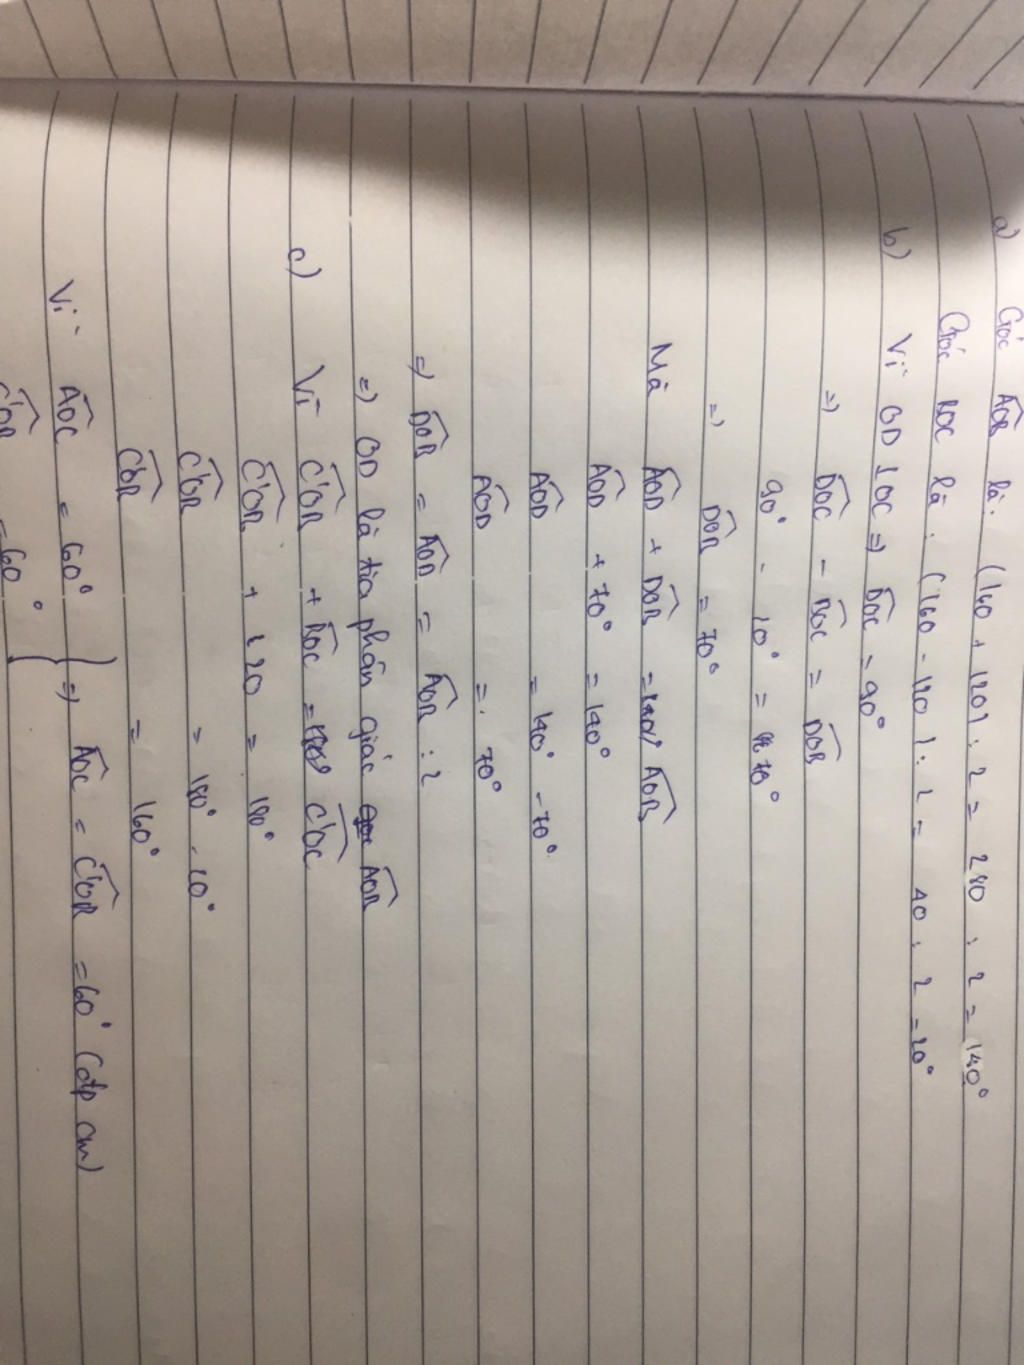 a) Góc AOB là: (160 + 120) : 2 = 280 : 2 = 140°
Góc BOC là: (160 - 120) : 2 = 40 : 2 = 20°
b) Vì OD ⊥ OC => DOC = 90°
=> DOC - BOC = DOB
90° - 20° = 70°
=> DOB = 70°
Mà AOD + DOB = AOB
AOD + 70° = 140°
AOD = 140° - 70°
AOD = 70°
=> DOB = AOD = AOB : 2
=> OD là tia phân giác AOB
c) Vì C'OB + BOC = C'OC
C'OB + 20 = 180°
C'OB = 180° - 20°
C'OB = 160°
Vì AOC = 60° } => AOC = C'OB = 60° (đpcm)
C'OB = 60°